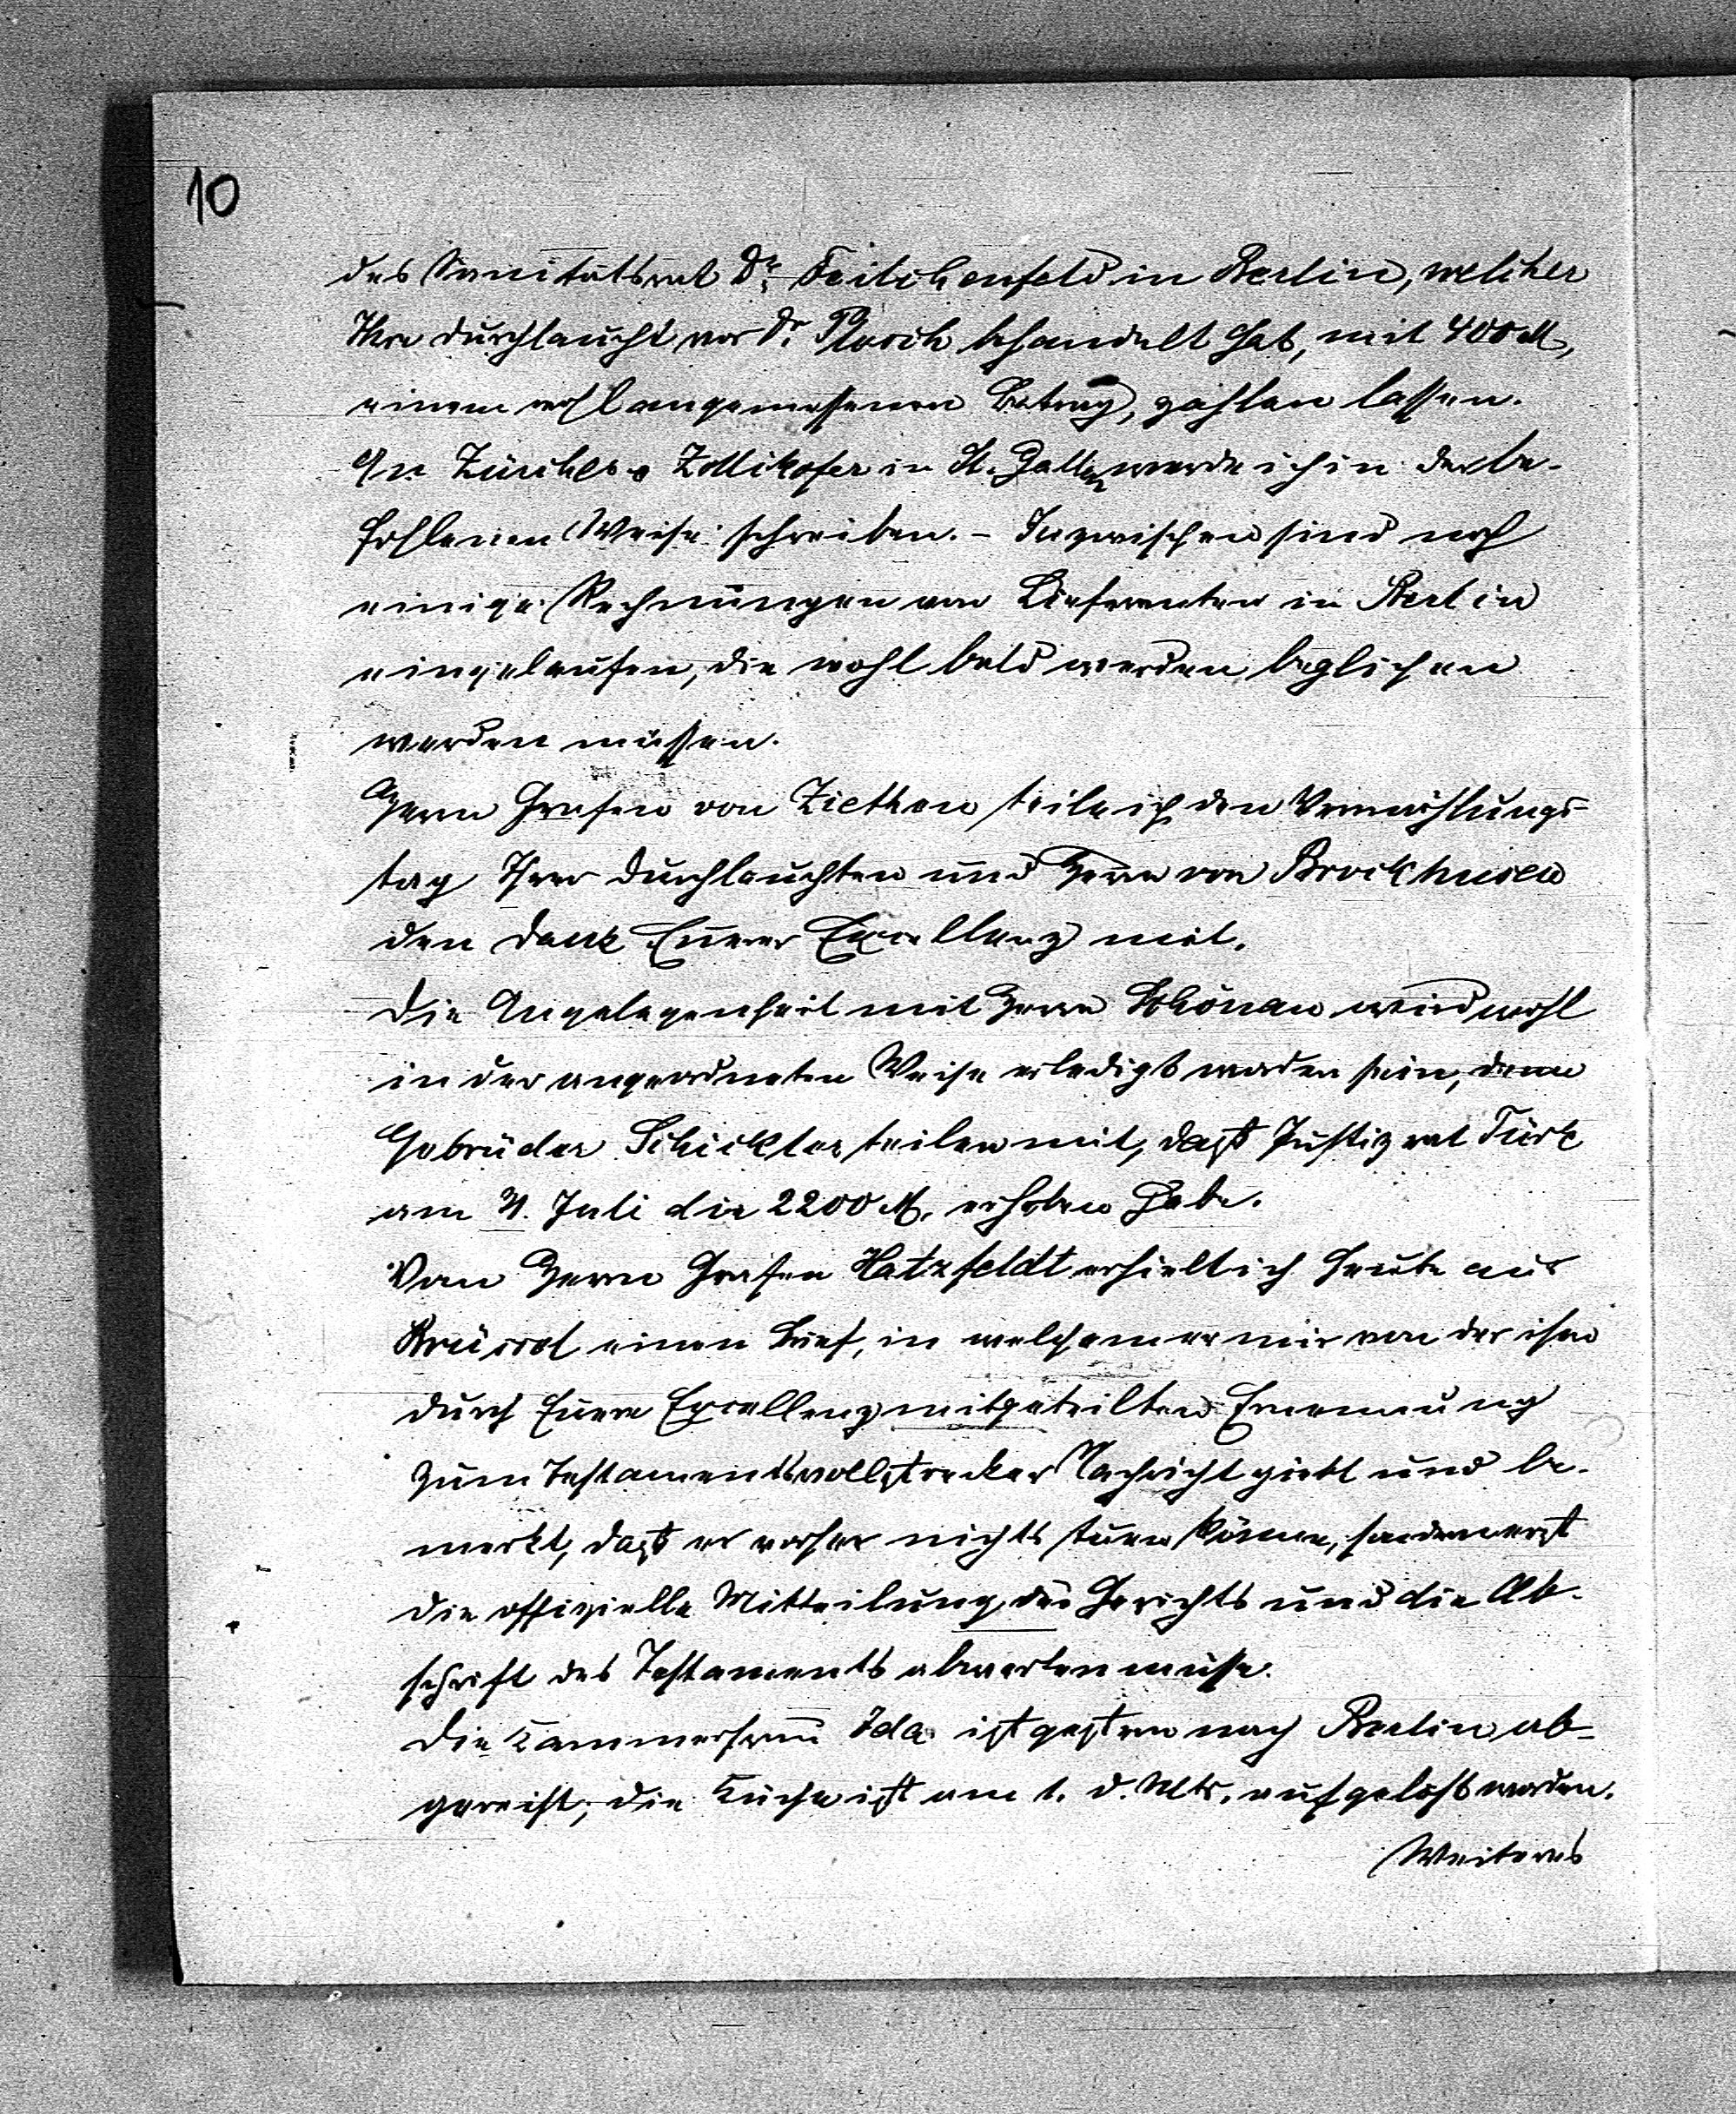 10
des Sanitätsrat Dr. Feilchenfeld in Berlin, welcher
Ihre Durchlaucht vor Dr. Plesch behandelt hat, mit 400 M,
einem wohl angemessenen Betrag, zahlen lassen.
An Zürcher & Zollikofer in St. Gallen werde ich in der be-
fohlenen Weise schreiben. - Inzwischen sind noch
einige Rechnungen von Lieferanten in Berlin
eingelaufen, die wohl bald werden beglichen
werden müssen.
Herrn Grafen von Ziethen teile ich den Vermählungs-
tag Ihrer Durchlauchten und Herrn von Brockhusen
den Dank Eurer Excellenz mit.
Die Angelegenheit mit Herrn Schönau wird wohl
in der angeordneten Weise erledigt worden sein, denn
Gebrüder Schickler teilen mit, daß Justizrat Türk
am Juli die 2200 M. erhoben habe.
Von Herrn Grafen Hatzfeldt erhielt ich heute aus
Brüssel einen Brief, in welchem er mir von der ihm
durch Euere Excellenz mitgeteilten Ernennung
zum Testamentsvollstrecker Nachricht giebt und be-
merkt, daß er vorher nichts tuen könne, sondern erst
die offizielle Mitteilung des Gerichts und die Ab-
schrift des Testaments abwarten müsse.
Die Kammerfrau Ida ist gestern nach Berlin ab-
gereist; die Küche ist am 1. d. Mts. aufgelöst worden.
Weiteres